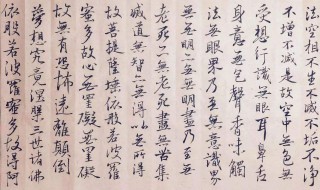 法空相不生不滅不垢不淨
不增不減是故空中無色無
受想行識無眼耳鼻舌
身意無色聲香味觸
法無眼界乃至無意識界
無無明亦無無明盡乃至無
老死亦無老死盡無苦集
滅道無智亦無得以無所得
故菩提薩埵依般若波羅
蜜多故心無罣礙無罣礙
故無有恐怖遠離顛倒
夢想究竟涅槃三世諸佛
依般若波羅蜜多故得阿